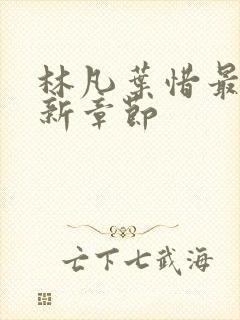 林凡葉惜最
新章節
亡下七武海